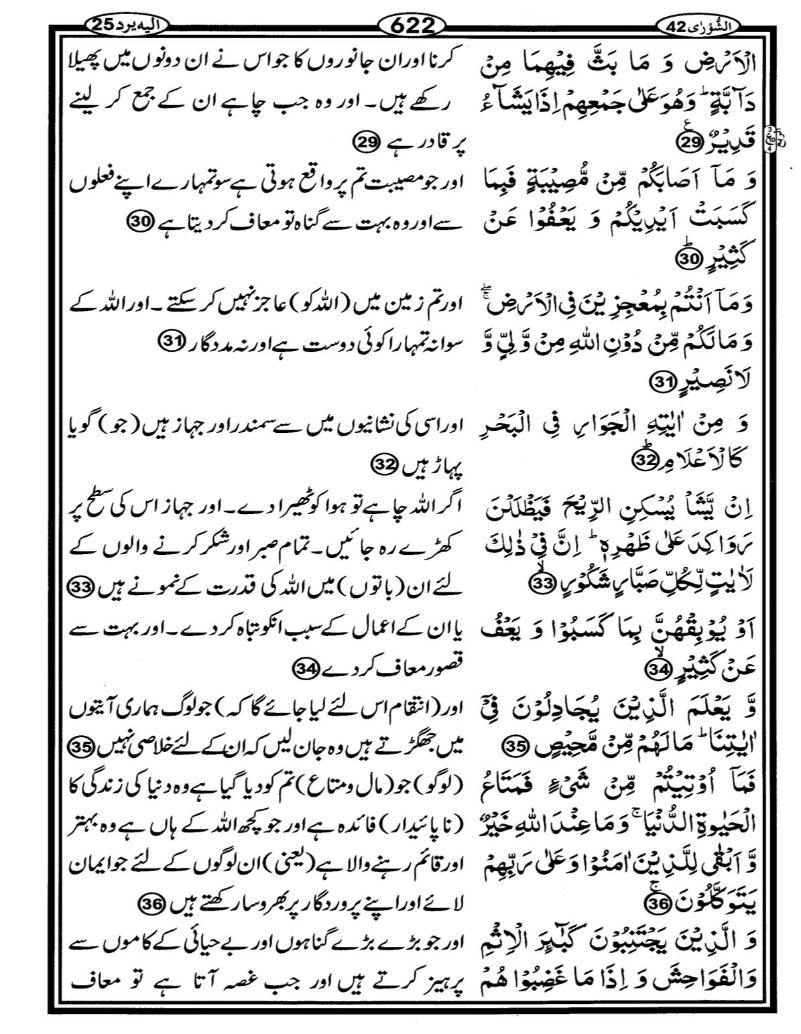 الشُّوْرٰی 42
622
الیه یرد 25
الْاَرْضِ وَ مَا بَثَّ فِیْهِمَا مِنْ
دَآبَّةٍ ؕ وَهُوَ عَلٰی جَمْعِهِمْ اِذَا یَشَآءُ
قَدِیْرٌ ﴿29﴾
وَ مَاۤ اَصَابَكُمْ مِّنْ مُّصِیْبَةٍ فَبِمَا
كَسَبَتْ اَیْدِیْكُمْ وَ یَعْفُوْا عَنْ
كَثِیْرٍ ﴿30﴾
وَمَاۤ اَنْتُمْ بِمُعْجِزِیْنَ فِی الْاَرْضِ ۖۚ
وَمَا لَكُمْ مِّنْ دُوْنِ اللّٰهِ مِنْ وَّلِیٍّ وَّ
لَا نَصِیْرٍ ﴿31﴾
وَ مِنْ اٰیٰتِهِ الْجَوَارِ فِی الْبَحْرِ
كَالْاَعْلَامِ ﴿32﴾
اِنْ یَّشَاْ یُسْكِنِ الرِّیْحَ فَیَظْلَلْنَ
رَوَاكِدَ عَلٰی ظَهْرِهٖ ؕ اِنَّ فِیْ ذٰلِكَ
لَاٰیٰتٍ لِّكُلِّ صَبَّارٍ شَكُوْرٍ ﴿33﴾
اَوْ یُوْبِقْهُنَّ بِمَا كَسَبُوْا وَ یَعْفُ
عَنْ كَثِیْرٍ ﴿34﴾
وَّ یَعْلَمَ الَّذِیْنَ یُجَادِلُوْنَ فِیْۤ
اٰیٰتِنَا ؕ مَا لَهُمْ مِّنْ مَّحِیْصٍ ﴿35﴾
فَمَاۤ اُوْتِیْتُمْ مِّنْ شَیْءٍ فَمَتَاعُ
الْحَیٰوةِ الدُّنْیَا ۚ وَمَا عِنْدَ اللّٰهِ خَیْرٌ
وَّ اَبْقٰی لِلَّذِیْنَ اٰمَنُوْا وَعَلٰی رَبِّهِمْ
یَتَوَكَّلُوْنَ ﴿36﴾
وَ الَّذِیْنَ یَجْتَنِبُوْنَ كَبٰٓئِرَ الْاِثْمِ
وَالْفَوَاحِشَ وَ اِذَا مَا غَضِبُوْا هُمْ
کرنا اور ان جانوروں کا جو اس نے ان دونوں میں پھیلا
رکھے ہیں۔ اور وہ جب چاہے ان کے جمع کر لینے
پر قادر ہے ﴿29﴾
اور جو مصیبت تم پر واقع ہوتی ہے سو تمہارے اپنے فعلوں
سے اور وہ بہت سے گناہ تو معاف کر دیتا ہے ﴿30﴾
اور تم زمین میں (اللہ کو) عاجز نہیں کر سکتے۔ اور اللہ کے
سوا نہ تمہارا کوئی دوست ہے اور نہ مددگار ﴿31﴾
اور اسی کی نشانیوں میں سے سمندر اور جہاز ہیں (جو) گویا
پہاڑ ہیں ﴿32﴾
اگر اللہ چاہے تو ہوا کو ٹھیرا دے۔ اور جہاز اس کی سطح پر
کھڑے رہ جائیں۔ تمام صبر اور شکر کرنے والوں کے
لئے ان (باتوں) میں اللہ کی قدرت کے نمونے ہیں ﴿33﴾
یا ان کے اعمال کے سبب انکو تباہ کر دے۔ اور بہت سے
قصور معاف کر دے ﴿34﴾
اور (انتقام اس لئے لیا جائے گا کہ) جو لوگ ہماری آیتوں
میں جھگڑتے ہیں وہ جان لیں کہ ان کے لئے خلاصی نہیں ﴿35﴾
(لوگو) جو (مال و متاع) تم کو دیا گیا ہے وہ دنیا کی زندگی کا
(ناپائیدار) فائدہ ہے اور جو کچھ اللہ کے ہاں ہے وہ بہتر
اور قائم رہنے والا ہے (یعنی) ان لوگوں کے لئے جو ایمان
لائے اور اپنے پروردگار پر بھروسا رکھتے ہیں ﴿36﴾
اور جو بڑے بڑے گناہوں اور بے حیائی کے کاموں سے
پرہیز کرتے ہیں اور جب غصہ آتا ہے تو معاف